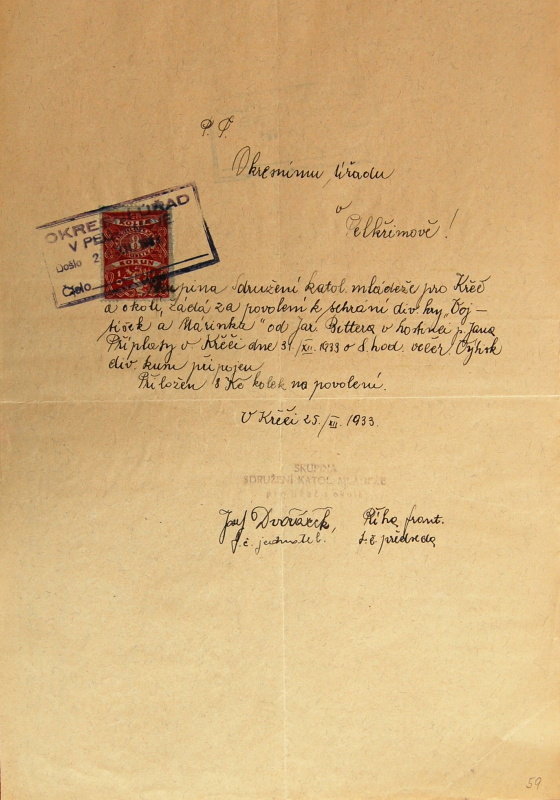 P. T.
Okresnímu úřadu
v Pelhřimově!
OKRESNÍ ÚŘAD
V PE
Došlo 2
Číslo
KOLEK
8
KORUN
Skupina Sdružení katol. mládeže pro Křeč
a okolí, žádá za povolení k sehrání div. hry „Voj-
tíšek a Mařinka" od Jar. Bittera v hostinci p. Jana
Připlaty v Křeči dne 31./XII. 1933 o 8. hod. večer. Výtisk
div. kusu připojen.
Přiložen 8 Kč kolek na povolení.
V Křči 25./XII. 1933.
SKUPINA
SDRUŽENÍ KATOL. MLÁDEŽE
pro Křeč a okolí
Josef Dvořáček, Říha frant.
t. č. jednatel. t. č. předseda
59